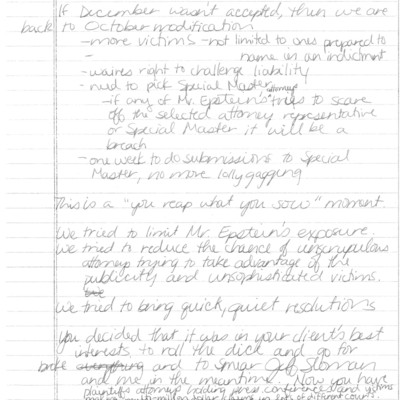 If December wasn't accepted, then we are
back to October modification
- more victims - not limited to ones prepared to
- name in an indictment
- waives right to challenge liability
- need to pick Special Master
attorneys
- if any of Mr. Epstein's tries to scare
off the selected attorney representative
or Special Master it will be a
breach
- one week to do submissions to Special
Master, no more lolly gagging
This is a "you reap what you sow" moment.
We tried to limit Mr. Epstein's exposure.
We tried to reduce the chance of unscrupulous
attorneys trying to take advantage of the
publicity and unsophisticated victims.
We tried to bring quick, quiet resolutions
You decided that it was in your client's best
interests to roll the dice and go for
broke everything and to smear Jeff Sloman
and me in the meantime. Now you have
plaintiff's attorneys holding press conferences and victims
making million dollar claims in lots of different courts.